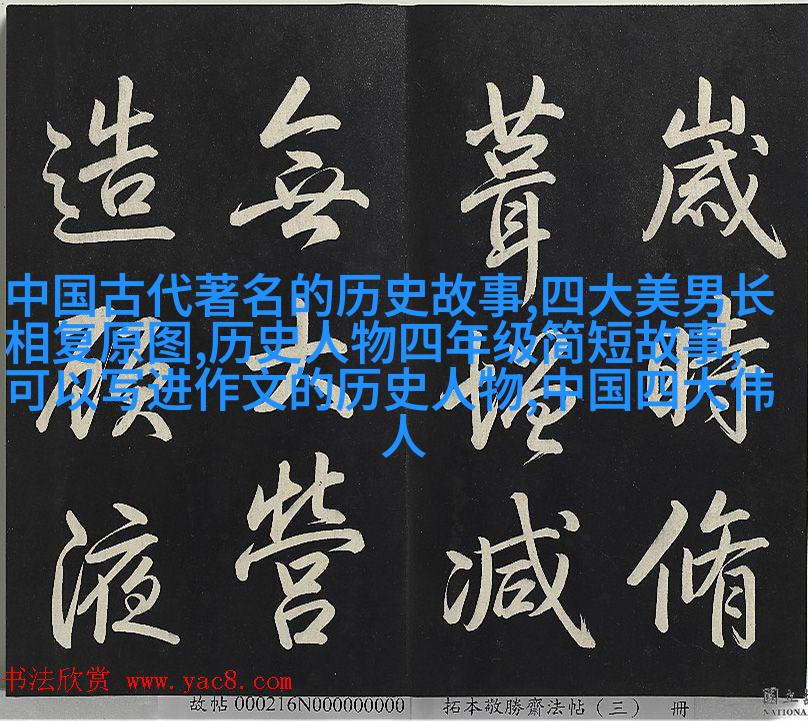 歲時脩
葺增減
無大營
造顧液
中国古代著名的历史故事,四大美男长
相复原图,历史人物四年级简短故事,
可以写进作文的历史人物,中国四大伟
人
书法欣赏 www.yac8.com
故帖 000216N000000000 拓本敬勝齋法帖（三） 冊
國立
NATIONA